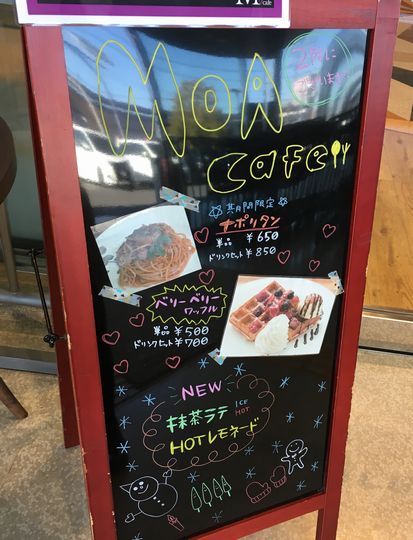 M
cafe
MOA
cafe
2階に
ございます
期間限定
ナポリタン
単品 ¥650
ドリンクセット ¥850
ベリーベリー
ワッフル
単品 ¥500
ドリンクセット ¥700
NEW
抹茶ラテ ICE HOT
HOTレモネード